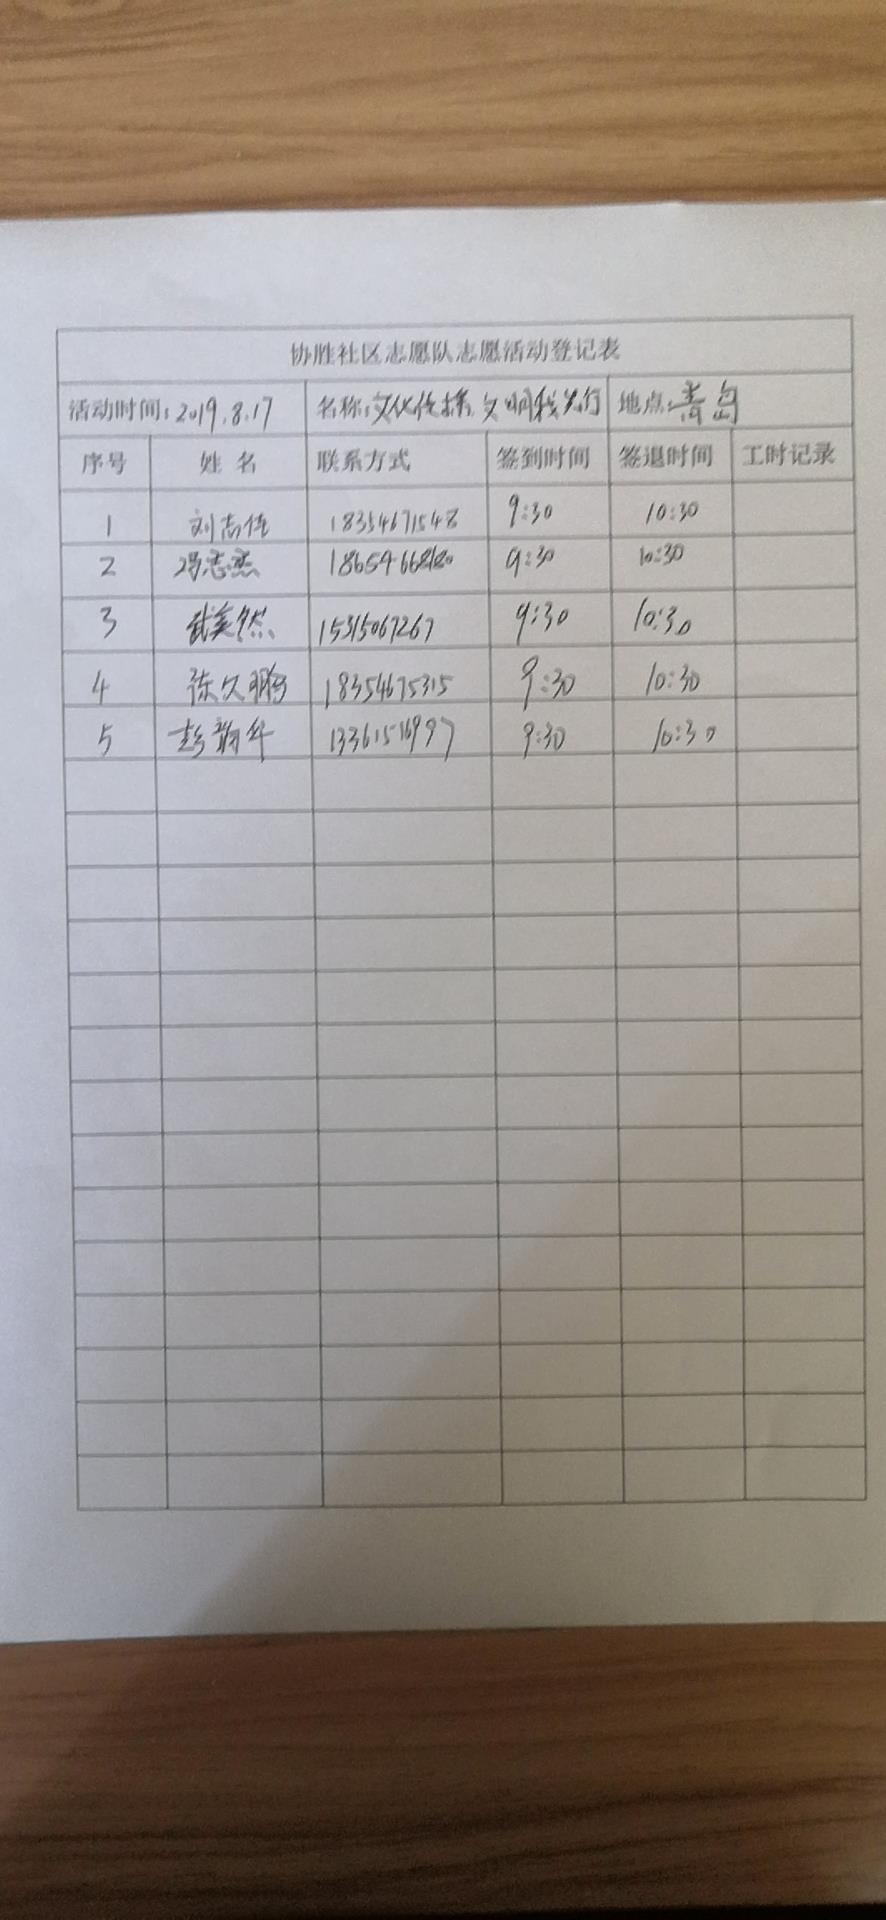 协胜社区志愿队志愿活动登记表
活动时间:2019.8.17 名称:文化传播,文明我先行 地点:青岛
序号 姓名 联系方式 签到时间 签退时间 工时记录
1 刘志伟 18354671548 9:30 10:30
2 冯志杰 9:30 10:30
3 武美然 15315067267 9:30 10:30
4 张久鹏 18354675315 9:30 10:30
5 彭 13361516997 9:30 10:30